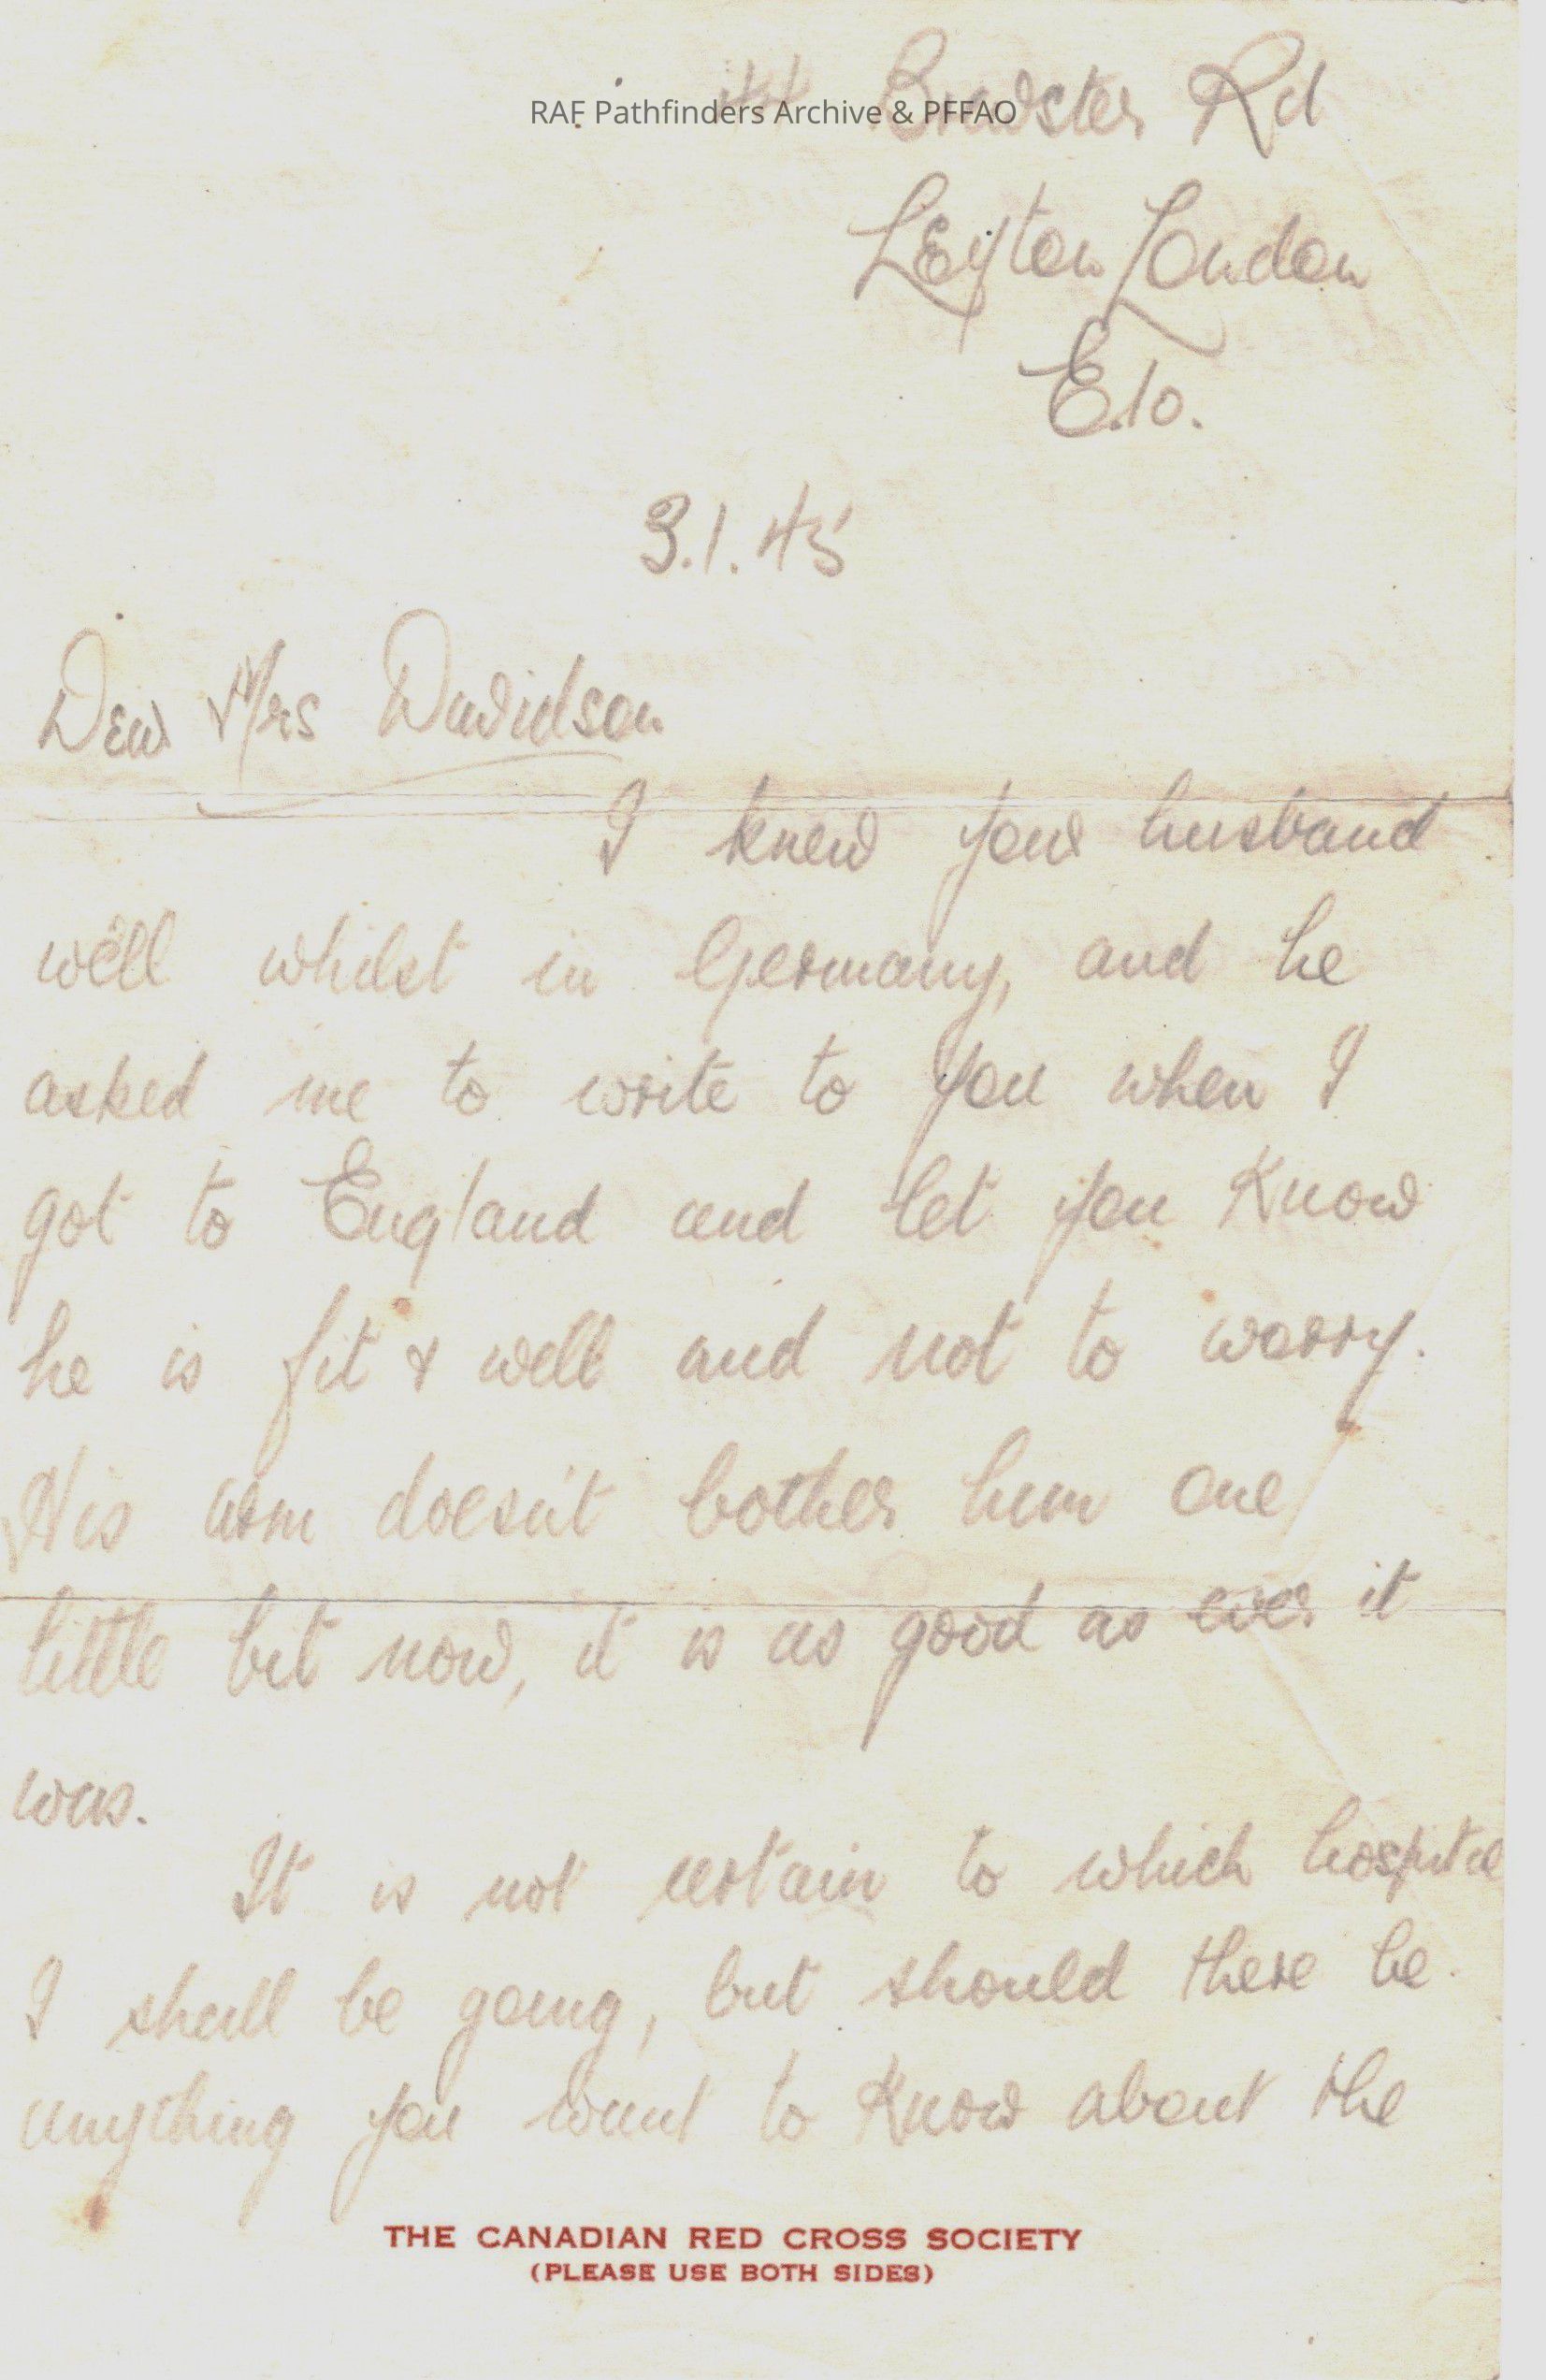 Brewster Rd
RAF Pathfinders Archive & PFFAO
Leyton London
E.10.
3.1.45
Dear Mrs Davidson
I knew your husband
well whilst in Germany, and he
asked me to write to you when I
got to England and let you know
he is fit & well and not to worry.
His arm doesn't bother him one
little bit now, it is as good as ever it
was.
It is not certain to which hospital
I shall be going, but should there be
anything you want to know about the
THE CANADIAN RED CROSS SOCIETY
(PLEASE USE BOTH SIDES)